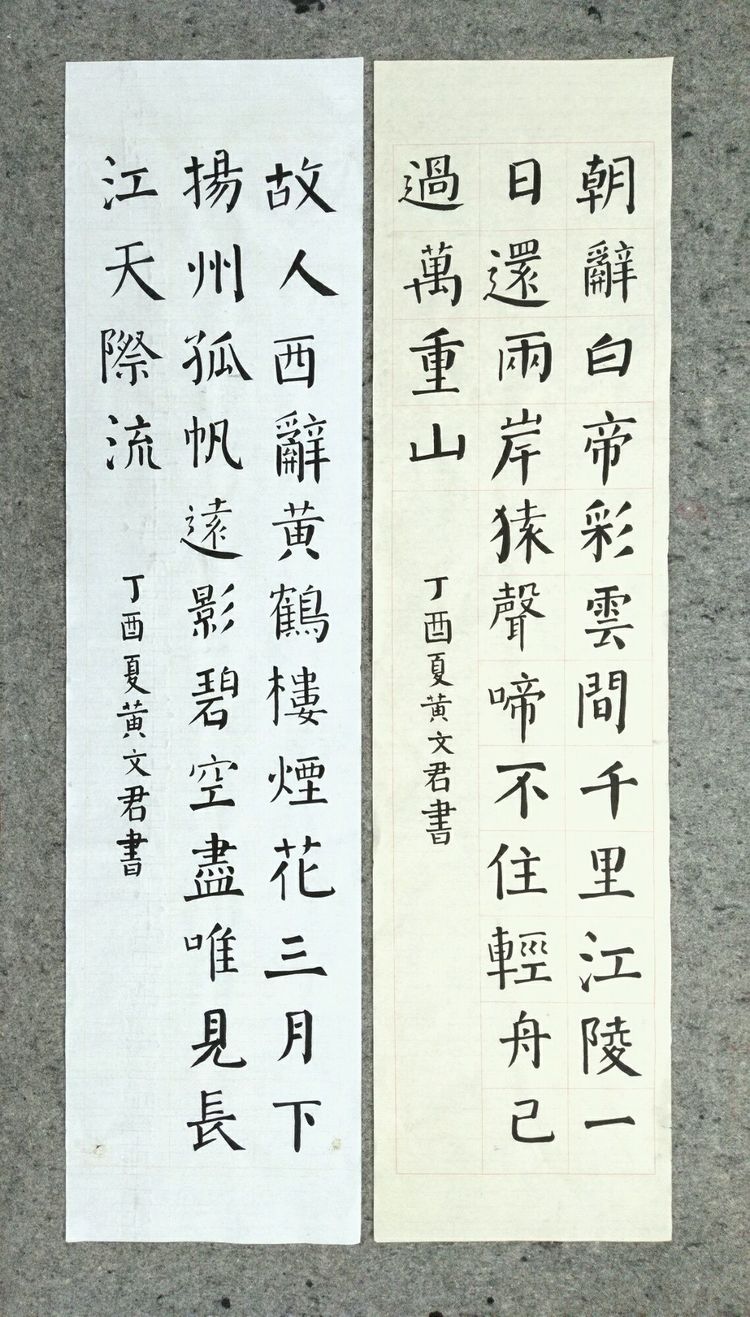 朝辭白帝彩雲間千里江陵一
日還兩岸猿聲啼不住輕舟已
過萬重山
丁酉夏黃文君書
故人西辭黃鶴樓煙花三月下
揚州孤帆遠影碧空盡唯見長
江天際流
丁酉夏黃文君書